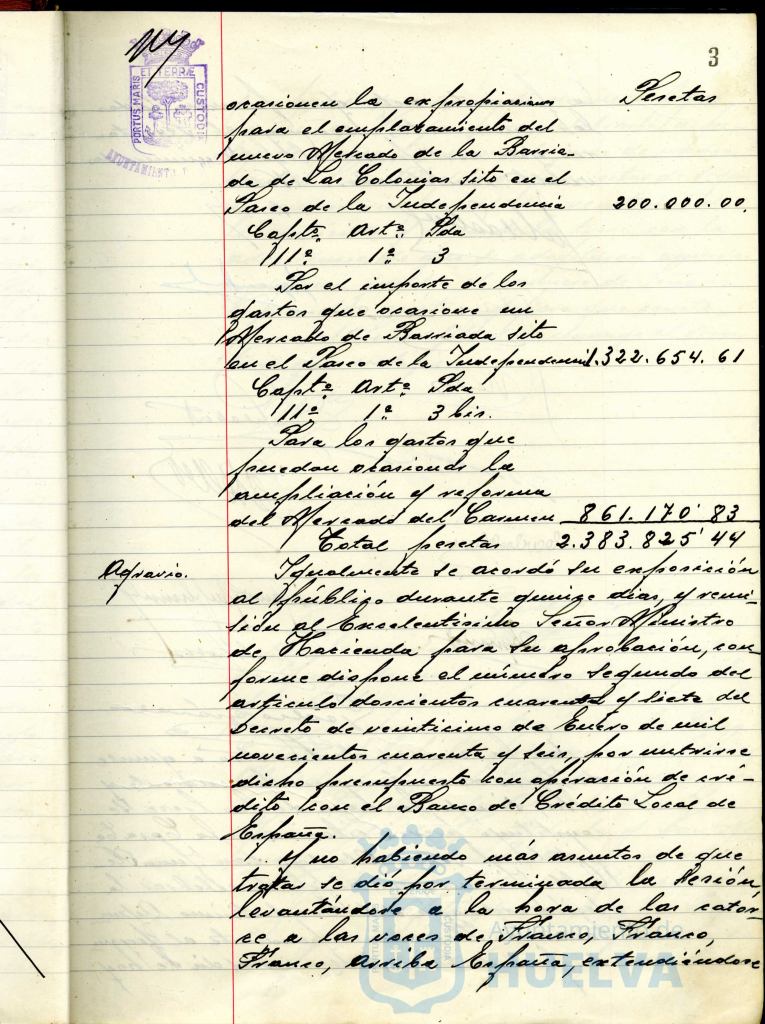 3
PORTUS MARIS ET TERRÆ CUSTODIA
AYUNTAMIENTO
ocasionen la expropiaciones Pesetas
para el emplazamiento del
nuevo Mercado de la Barria-
da de Las Colonias sito en el
Paseo de la Independencia 200.000.00.
Captº. Artº. Pda
11º 1º 3
Por el importe de los
gastos que ocasione un
Mercado de Barriada sito
en el Paseo de la Independencia 1.322.654.61
Captº. Artº. Pda
11º 1º 3 bis.
Para los gastos que
puedan ocasionar la
ampliación y reforma
del Mercado del Carmen 861.170'83
Total pesetas 2.383.825'44
Agravio. Igualmente se acordó su exposición
al público durante quince dias, y remi-
sión al Excelentisimo Señor Ministro
de Hacienda para su aprobación, con
forme dispone el número segundo del
articulo doscientos cuarenta y siete del
Decreto de veinticinco de Enero de mil
novecientos cuarenta y seis, por nutrirse
dicho presupuesto con operación de cré-
dito con el Banco de Crédito Local de
España.
Y no habiendo más asuntos de que
tratar se dió por terminada la Sesión,
levantándose a la hora de las cator-
ce a las voces de Franco, Franco,
Franco, Arriba España, extendiéndose
Ayuntamiento de
HUELVA